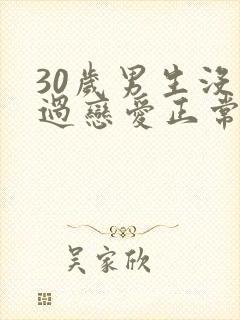 30歲男生沒
過戀愛正常
吳家欣